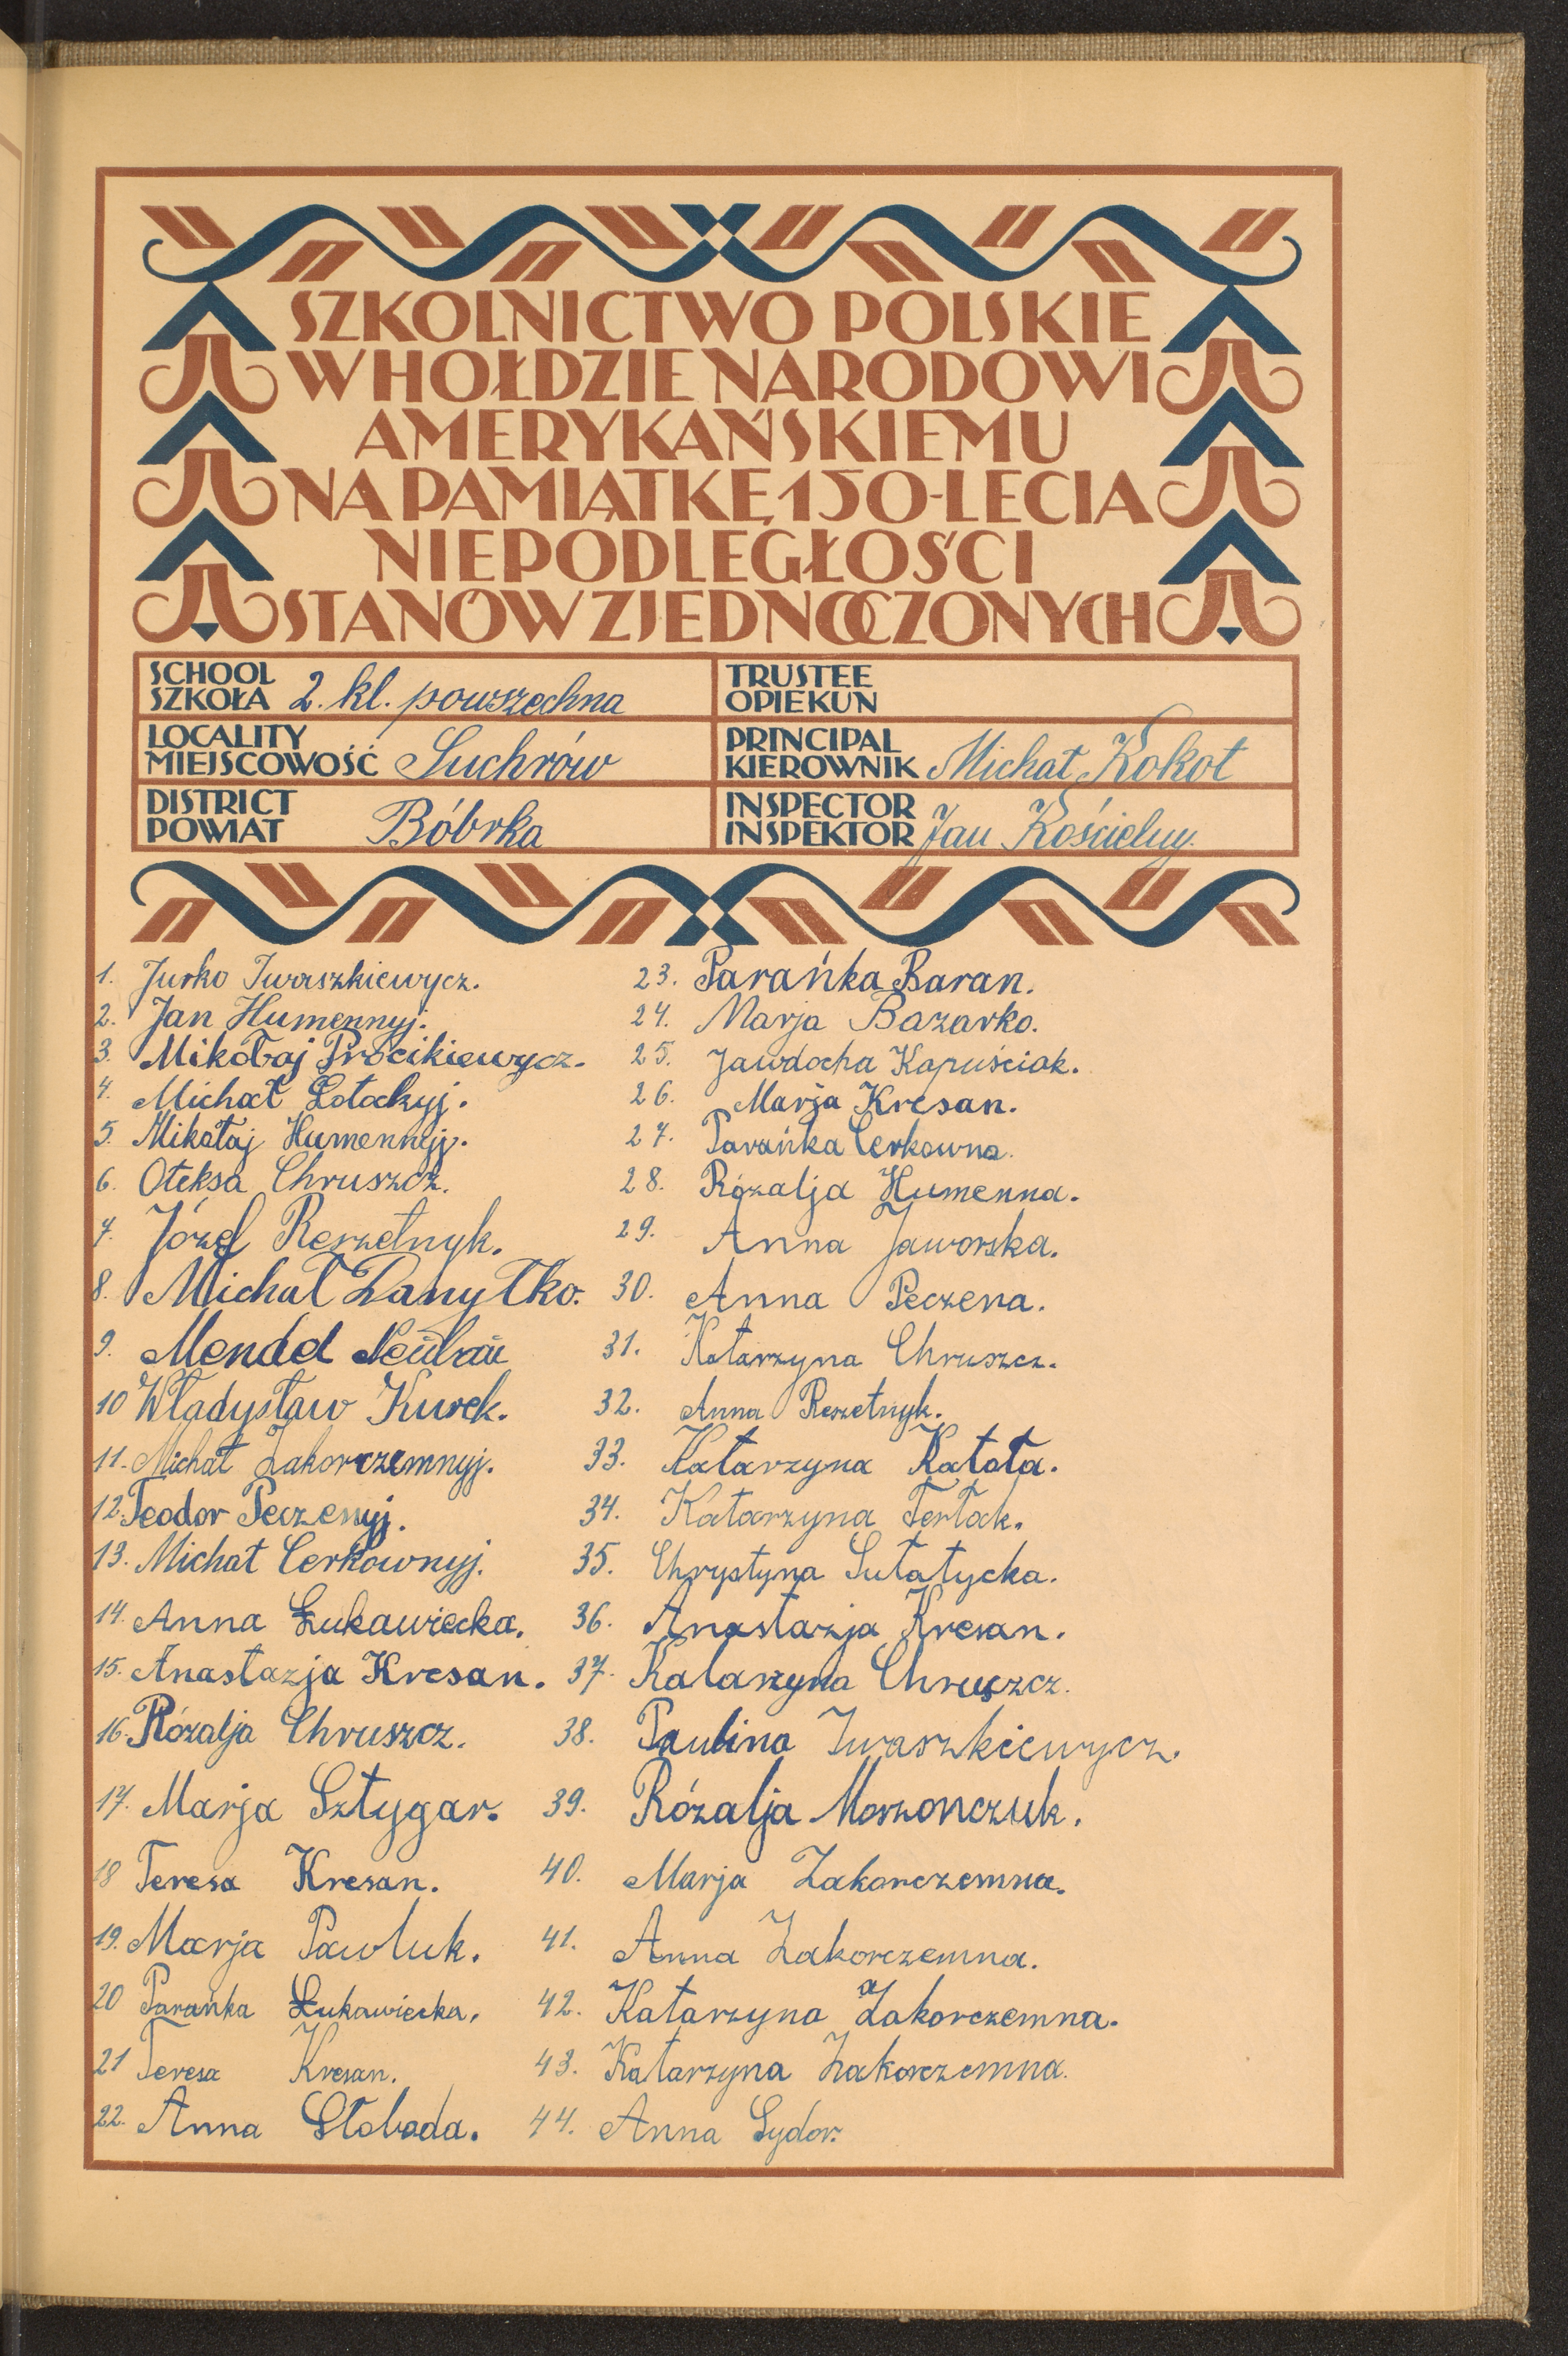 SZKOLNICTWO POLSKIE
W HOŁDZIE NARODOWI
AMERYKAŃSKIEMU
NA PAMIĄTKĘ 150-LECIA
NIEPODLEGŁOŚCI
STANÓW ZJEDNOCZONYCH
SCHOOL
SZKOŁA 2. kl. powszechna
LOCALITY
MIEJSCOWOŚĆ Suchrów
DISTRICT
POWIAT Bóbrka
TRUSTEE
OPIEKUN
PRINCIPAL
KIEROWNIK Michał Kokot
INSPECTOR
INSPEKTOR Jan Kościelny.
1. Jurko Iwaszkiewycz.
2. Jan Humennyj.
3. Mikołaj Procikiewycz.
4. Michał Łotockyj.
5. Mikołaj Humennyj.
6. Ołeksa Chruszcz.
7. Józef Reszetnyk.
8. Michał Danyłko.
9. Mendel
10 Władysław Kurek.
11. Michał Zakorczemnyj.
12. Teodor Peczenyj.
13. Michał Cerkownyj.
14. Anna Łukawiecka.
15. Anastazja Kresan.
16. Rózalja Chruszcz.
17. Marja Sztygar.
18 Teresa Kresan.
19. Marja Pawluk.
20 Parańka Łukawiecka.
21 Teresa Kresan.
22. Anna Słoboda.
23. Parańka Baran.
24. Marja Bazarko.
25. Jawdocha Kapuściak.
26. Marja Kresan.
27. Parańka Cerkowna.
28. Rózalja Humenna.
29. Anna Jaworska.
30. Anna Peczena.
31. Katarzyna Chruszcz.
32. Anna Reszetnyk.
33. Katarzyna Katola.
34. Katarzyna Terlak.
35. Chrystyna Sułatycka.
36. Anastazja Kresan.
37. Katarzyna Chruszcz.
38. Paulina Iwaszkiewycz.
39. Rózalja Moszonczuk.
40. Marja Zakorczemna.
41. Anna Zakorczemna.
42. Katarzyna Zakorczemna.
43. Katarzyna Zakorczemna.
44. Anna Sydor.